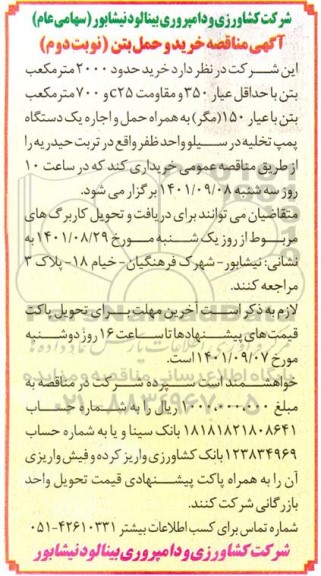 شرکت کشاورزی و دامپروری بینالود نیشابور (سهامی عام)
آگهی مناقصه خرید و حمل بتن (نوبت دوم)
این شرکت در نظر دارد خرید حدود ۲۰۰۰ مترمکعب
بتن با حداقل عیار ۳۵۰ و مقاومت c۲۵ و ۷۰۰ مترمکعب
بتن با عیار ۱۵۰ (مگر) به همراه حمل و اجاره یک دستگاه
پمپ تخلیه در سیلو واحد ظفر واقع در تربت حیدریه را
از طریق مناقصه عمومی خریداری کند که در ساعت ۱۰
روز سه شنبه ۱۴۰۱/۰۹/۰۸ برگزار می شود.
متقاضیان می توانند برای دریافت و تحویل کاربرگ های
مربوط از روز یک شنبه مورخ ۱۴۰۱/۰۸/۲۹ به
نشانی: نیشابور - شهرک فرهنگیان - خیام ۱۸ - پلاک ۳
مراجعه کنند.
لازم به ذکر است آخرین مهلت برای تحویل پاکت
قیمت های پیشنهادها تا ساعت ۱۶ روز دوشنبه
مورخ ۱۴۰۱/۰۹/۰۷ است.
خواهشمند است سپرده شرکت در مناقصه به
مبلغ ۱.۰۰۰.۰۰۰.۰۰۰ ریال را به شماره حساب
۱۸۱۸۱۸۲۱۸۰۸۶۴۱ بانک سینا و یا به شماره حساب
۱۲۳۸۳۴۹۶۹ بانک کشاورزی واریز کرده و فیش واریزی
آن را به همراه پاکت پیشنهادی قیمت تحویل واحد
بازرگانی شرکت کنند.
شماره تماس برای کسب اطلاعات بیشتر ۴۲۶۱۰۳۳۱-۰۵۱
شرکت کشاورزی و دامپروری بینالود نیشابور